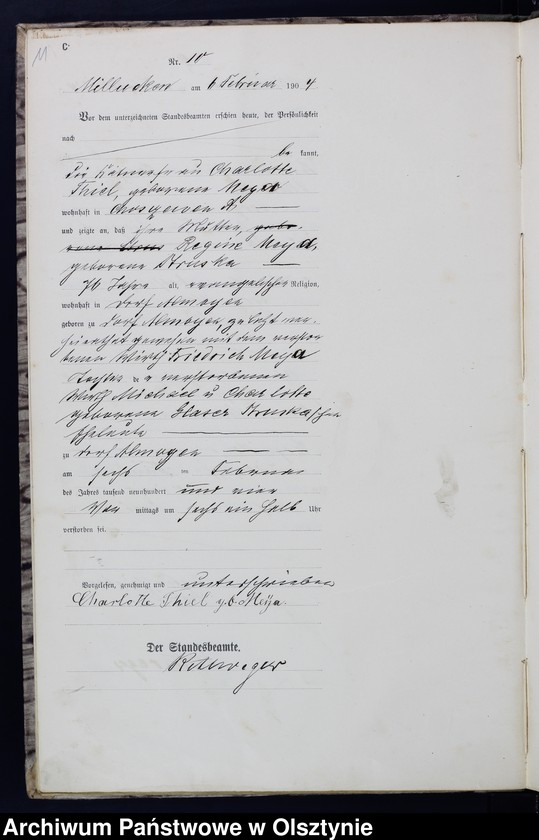 11
C.
Nr. 10
Milluken am 6 Februar 1904
Vor dem unterzeichneten Standesbeamten erschien heute, der Persönlichkeit
nach
be kannt,
die Charlotte
Thiel, geborene Meya
wohnhaft in A,
und zeigte an, daß ihre Mutter, gebo-
rene Regine Meya,
geborene Struska
76 Jahre alt, evangelischer Religion,
wohnhaft in Dorf Almoyen
geboren zu Dorf Almoyen, zuletzt ver-
heirathet gewesen mit dem verstor
benen Wirth Friedrich Meya
Tochter der verstorbenen
Wirth Michael u Charlotte
geborene Glaser Struskaschen
Eheleute
zu Dorf Almoyen
am sechs ten Februar
des Jahres tausend neunhundert und vier
Vor mittags um sechs ein halb Uhr
verstorben sei.
Vorgelesen, genehmigt und unterschrieben
Charlotte Thiel geb Meya.
Der Standesbeamte.
Archiwum Państwowe w Olsztynie